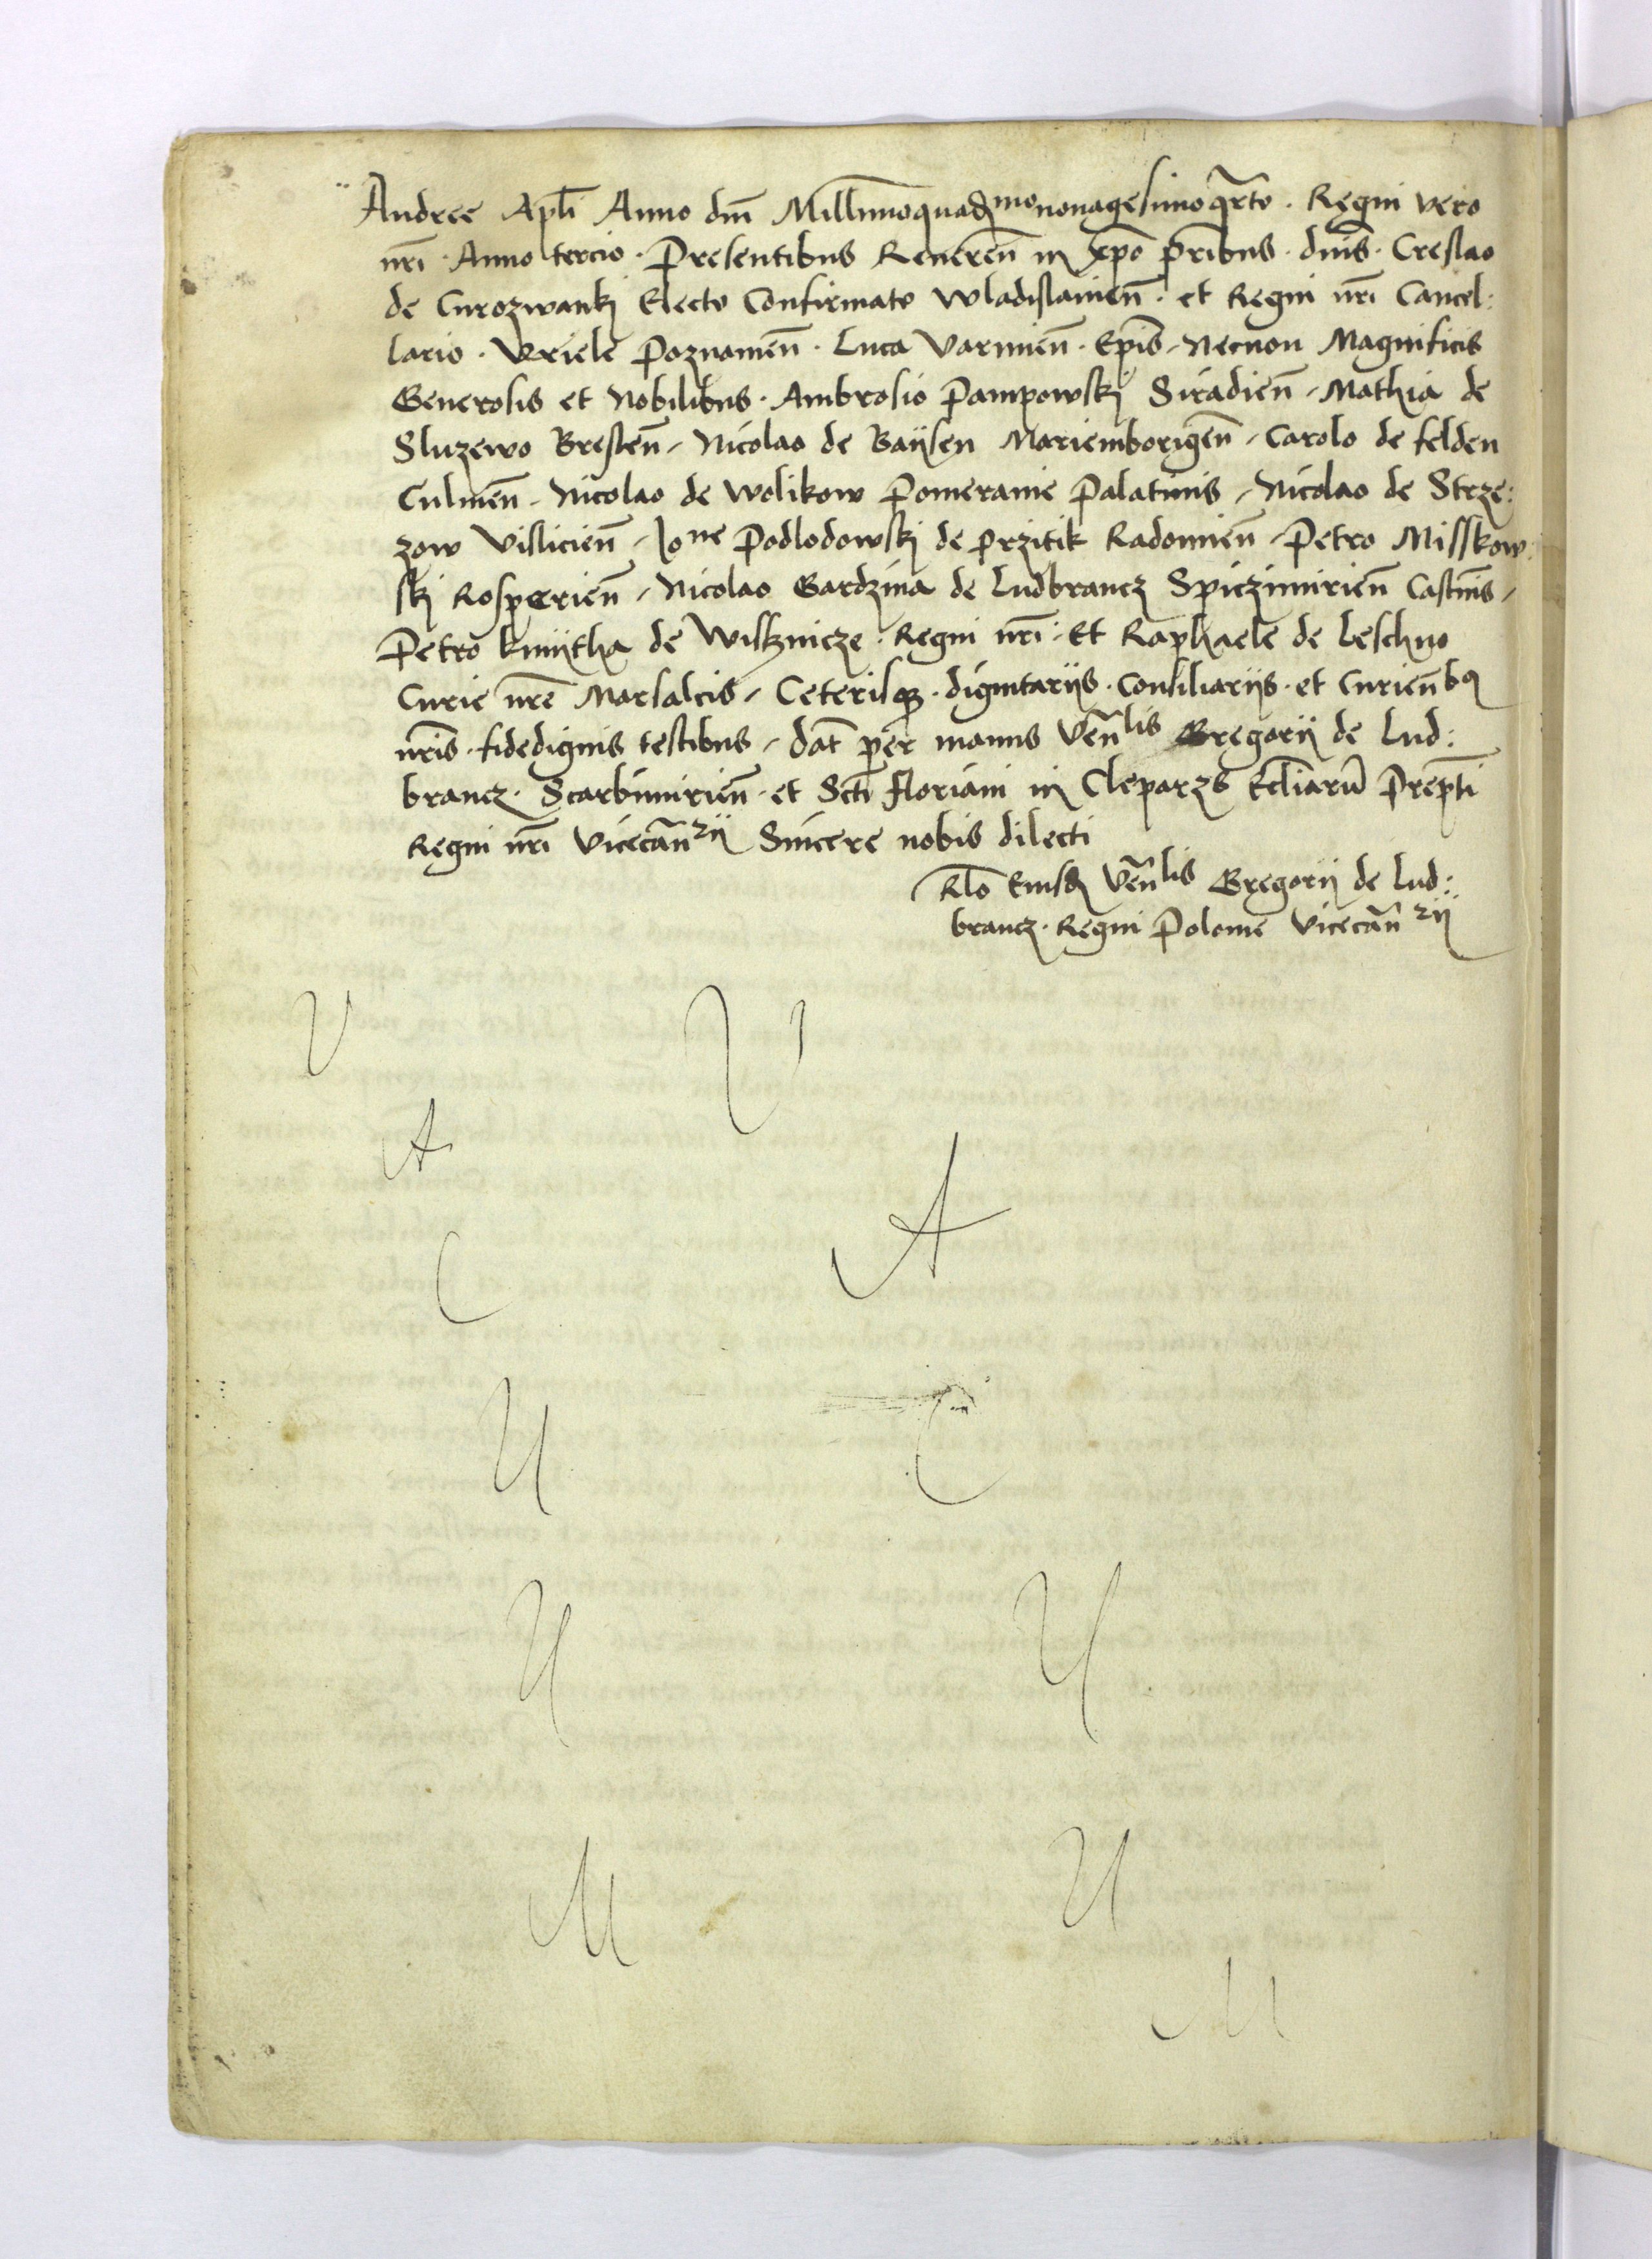 Andree Apli Anno dni Millimoquadrmo nonagesimoqrto . Regni vero
nri . Anno tercio . Presentibus Reveren in xpo pribus . dnis . Creslao
de Curozwanki Electo Confirmato Wladislavien . et Regni nri Cancel:
lario . Vriele Poznanien . Luca Varmien . Epis . Necnon Magnificis
Generosis et Nobilibus . Ambrosio Pampowski Siradien / Mathia de
Sluzewo Bresten / Nicolao de Baÿsen Mariemborigen / Carolo de felden
Culmen . Nicolao de Wolikow Pomeranie Palatinis / Nicolao de Strze:
zow Vislicien / Jone Podlodowski de Przitik Radomien / Petro Misskow:
ski Rosperien / Nicolao Gardzina de Ludbrancz Spiczimirien Castnis /
Petro kmitha de Wisznicze . Regni nri . Et Raphaele de Leschno
Curie nre Marsalcis / Ceterisq . dignitariis . Consiliariis . et Curienbq
nris . fidedignis testibus / dat per manus Venlis Gregorii de Lud:
brancz . Scarbimirien . et Scti floriani in Cleparzs Ecliaru Prepti
Regni nri Vicecanrii Sincere nobis dilecti
Rlo Eiusd Venlis Gregorii de Lud:
brancz . Regni Polonie Vicecanrii
V V
A A
C C
U
U U
M U
M